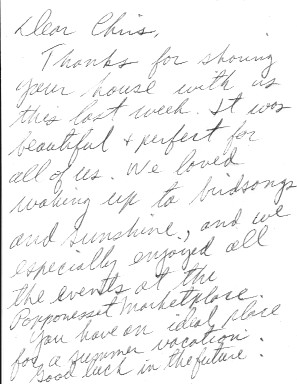 Dear Chris,
Thanks for sharing
your house with us
this last week. It was
beautiful + perfect for
all of us. We loved
waking up to birdsongs
and sunshine, and we
especially enjoyed all
the events at the
Popponesset Marketplace.
You have an ideal place
for a summer vacation.
Good luck in the future.